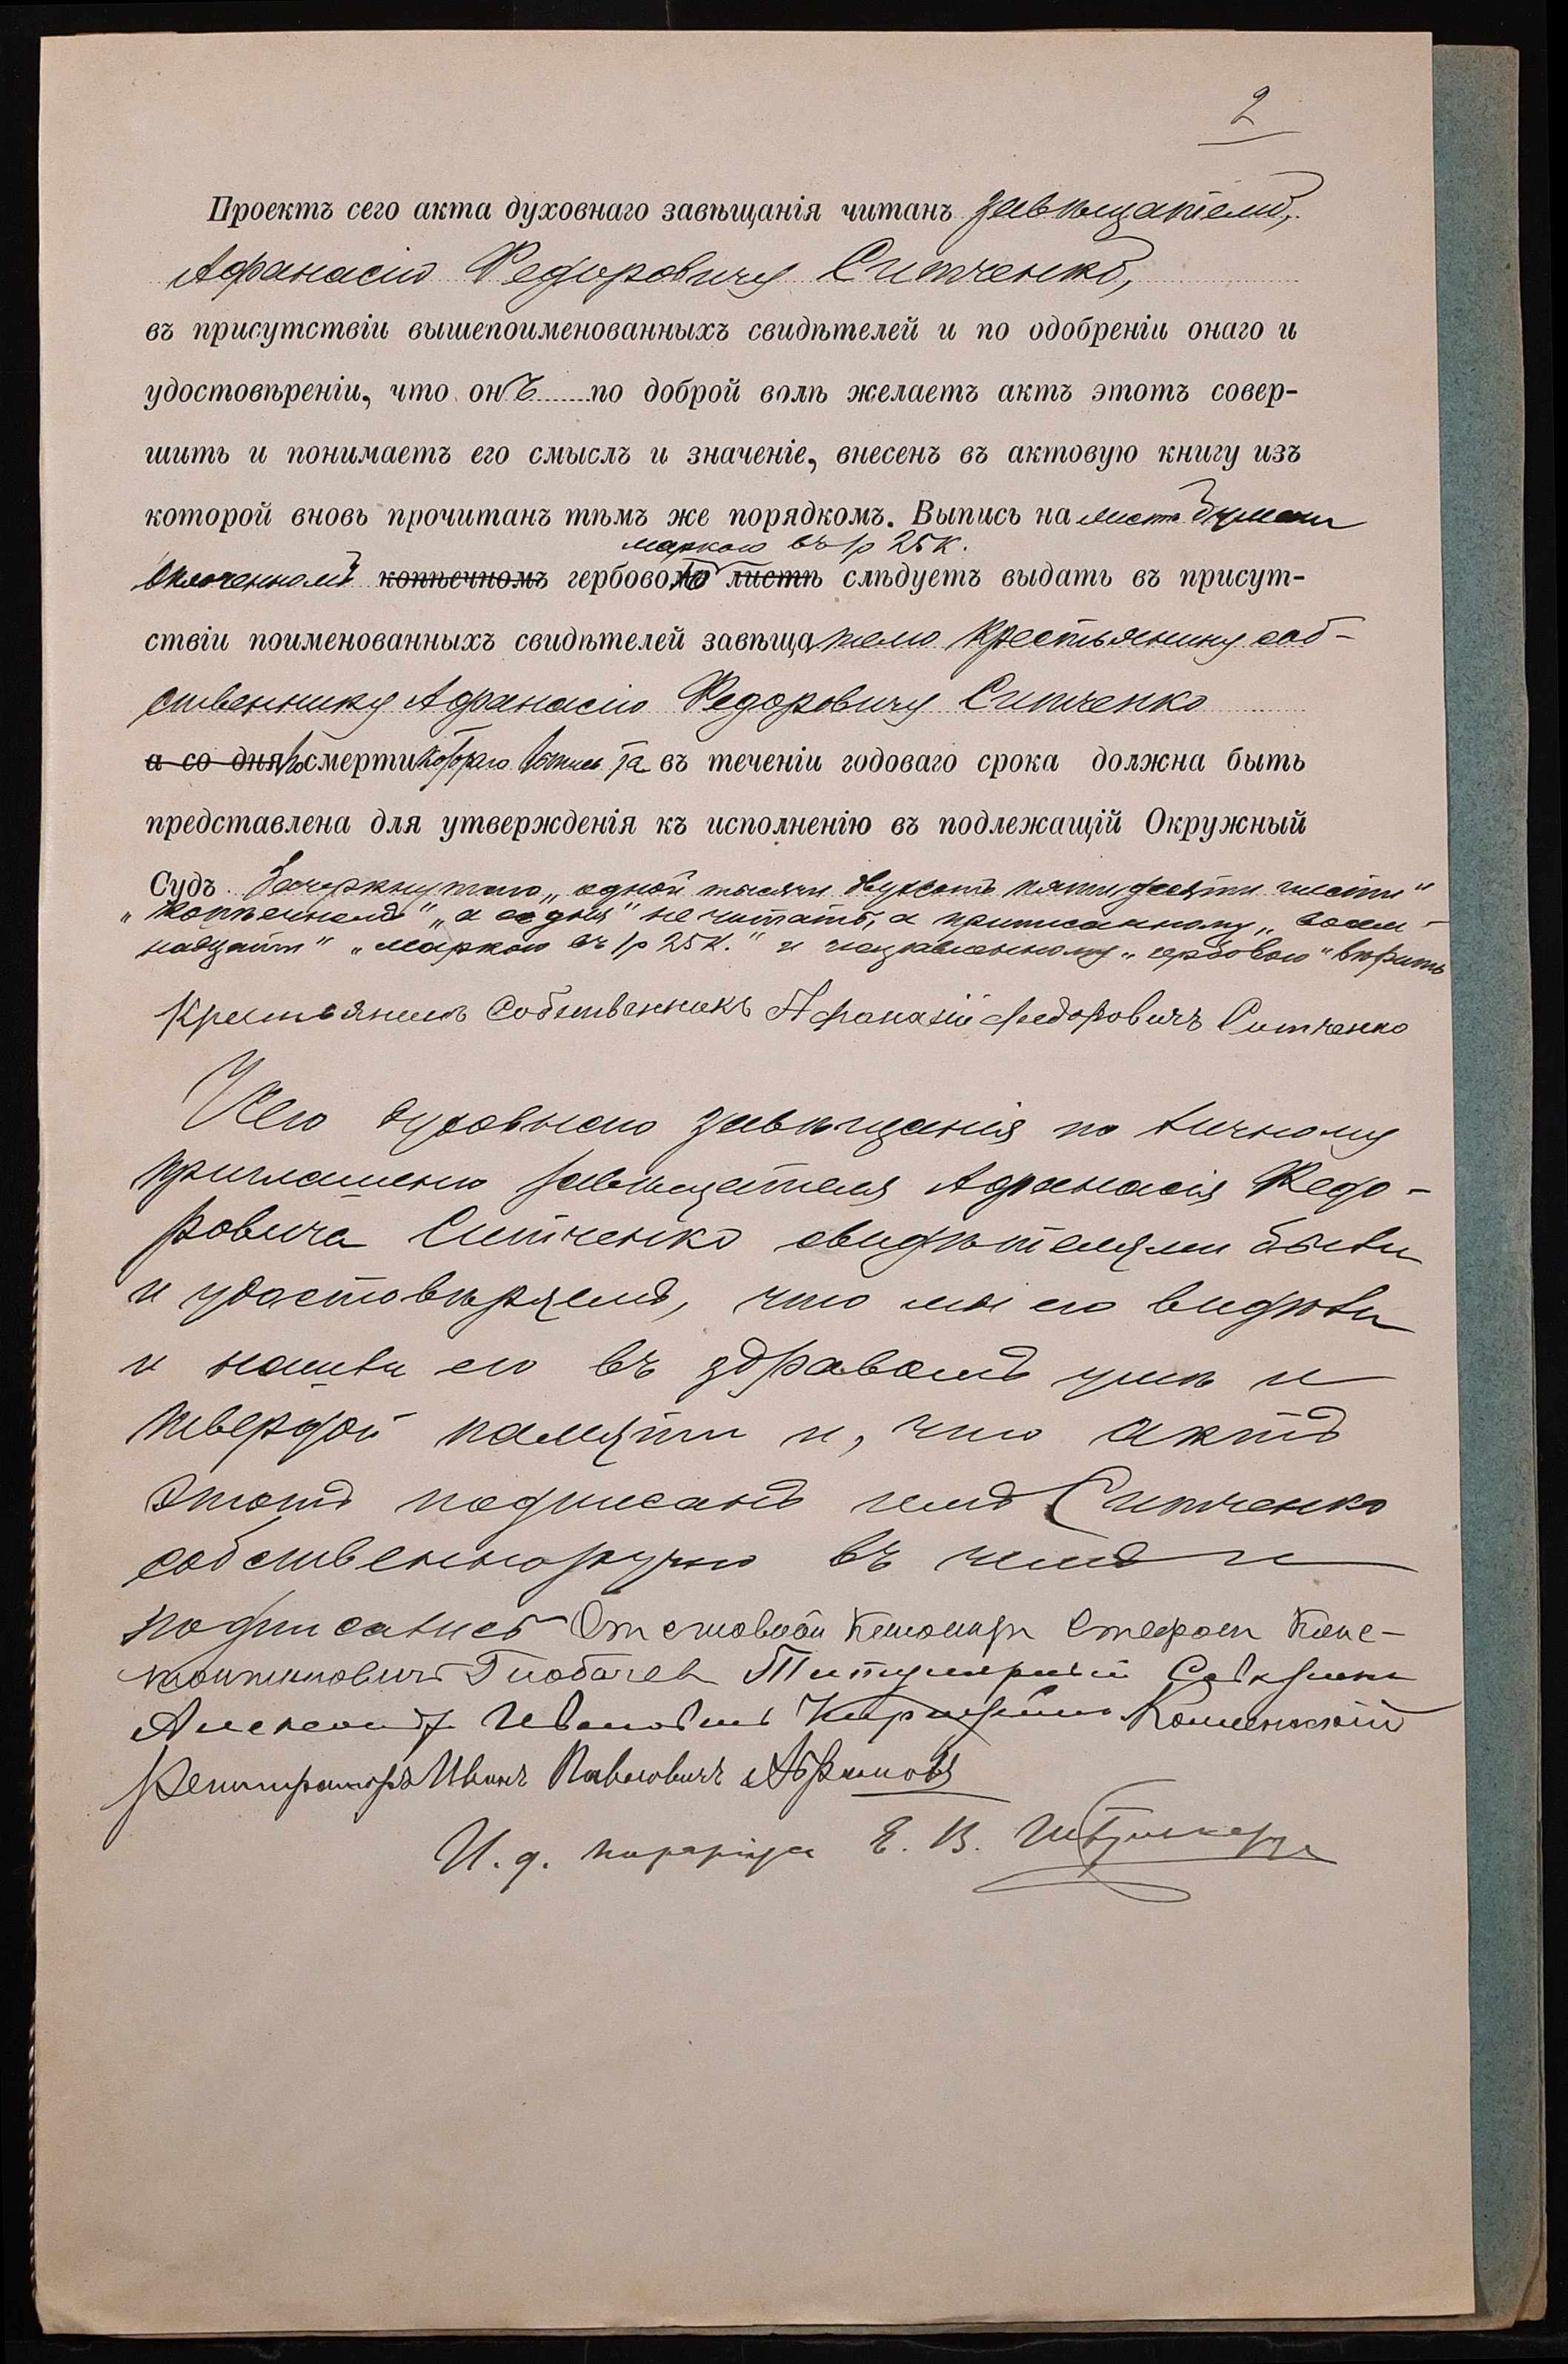 2
Проектъ сего акта духовнаго завѣщанія читанъ завѣщателю,
Афанасію Федоровичу Ситченко,
въ присутствіи вышепоименованныхъ свидѣтелей и по одобреніи онаго и
удостовѣреніи, что онъ по доброй волѣ желаетъ актъ этотъ совер-
шить и понимаетъ его смыслъ и значеніе, внесенъ въ актовую книгу изъ
которой вновь прочитанъ тѣмъ же порядкомъ. Выпись на листѣ бумаги
маркою въ 1 р 25 к.
оплоченномъ копѣечномъ гербовою листѣ слѣдуетъ выдать въ присут-
ствіи поименованныхъ свидѣтелей завѣщателю крестьянину соб-
ственнику Афанасію Федоровичу Ситченко
а со дня по смерти котораго выпись та въ теченіи годоваго срока должна быть
представлена для утвержденія къ исполненію въ подлежащій Окружный
Судъ. Зачеркнутаго „одной тысячи двухсотъ пятидесяти шести"
„копѣечномъ" „а со дня" не читать, а приписанному „восем-
надцати" „маркою въ 1 р 25 к." и исправленному „гербовою" вѣрить
Крестьянинъ Собственникъ Афанасій Федоровичъ Ситченко
Сего духовнаго завѣщанія по личному
приглашенію завѣщателя Афанасія Федо-
ровича Ситченко свидѣтелями были
и удостовѣряемъ, что мы его видѣли
и нашли его въ здравомъ умѣ и
твердой памяти и, что актъ
этотъ подписанъ имъ Ситченко
собственноручно въ чемъ и
подписались Отставной Стефан Конс-
тантинович Титулярный Совѣтник
Александръ Ивановичъ Коллежскій
Регистраторъ Иванъ Павловичъ Абрамовъ
И. д. нотаріуса Е. В.